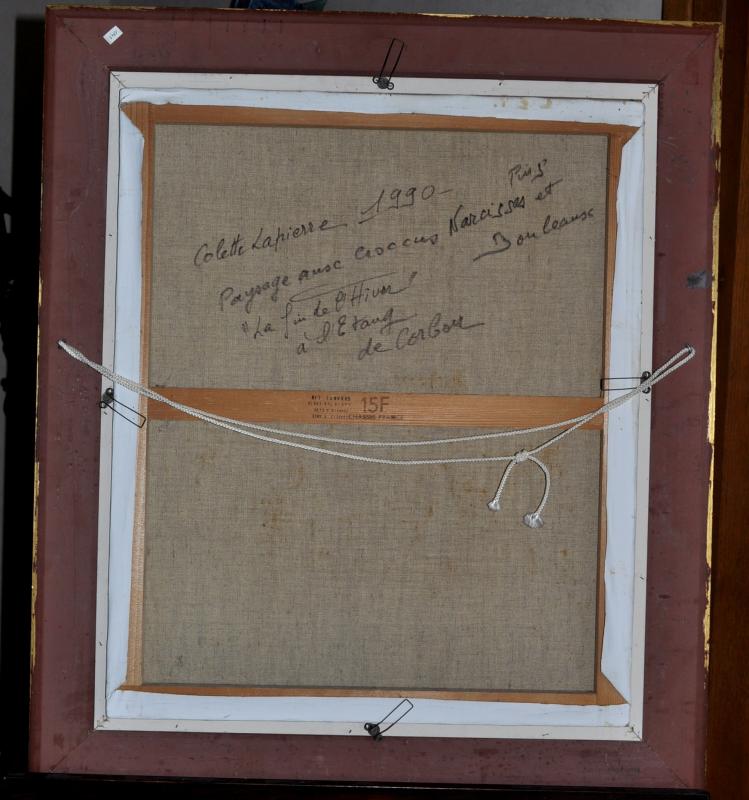 Colette Lapierre 1990-
Pins
Paysage aux croccus Narcisses et
Bouleaux
"La fin de l'Hiver"
à l'Etang
de Corbon
15F
CHASSIS FRANCE